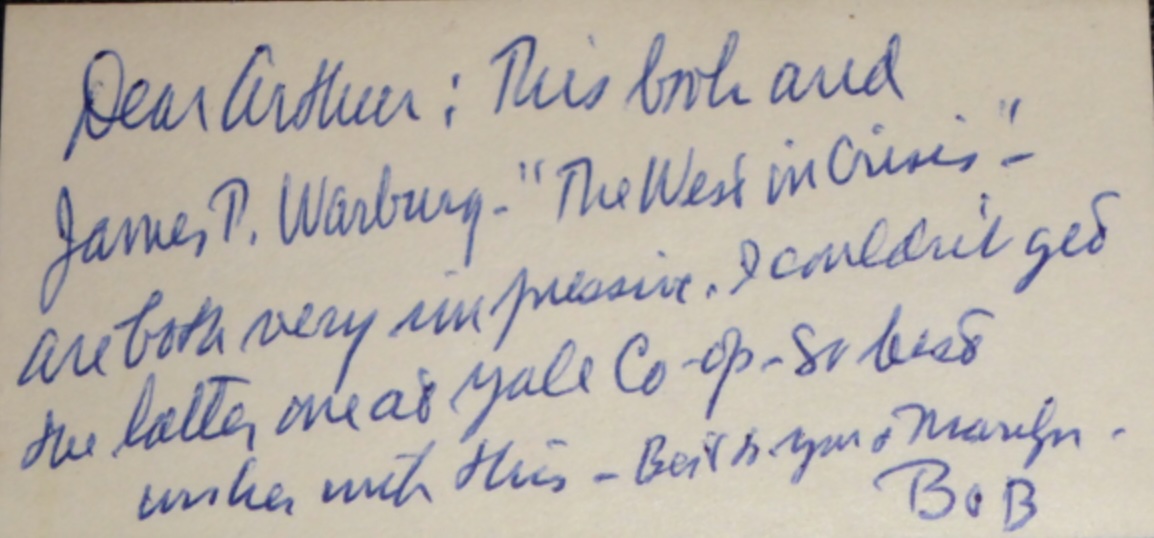 Dear Arthur: This book and
James P. Warburg - "The West in Crisis" -
are both very impressive. I couldn't get
the latter one at Yale Co-op - So best
wishes with this - Best to you & Marilyn -
BoB